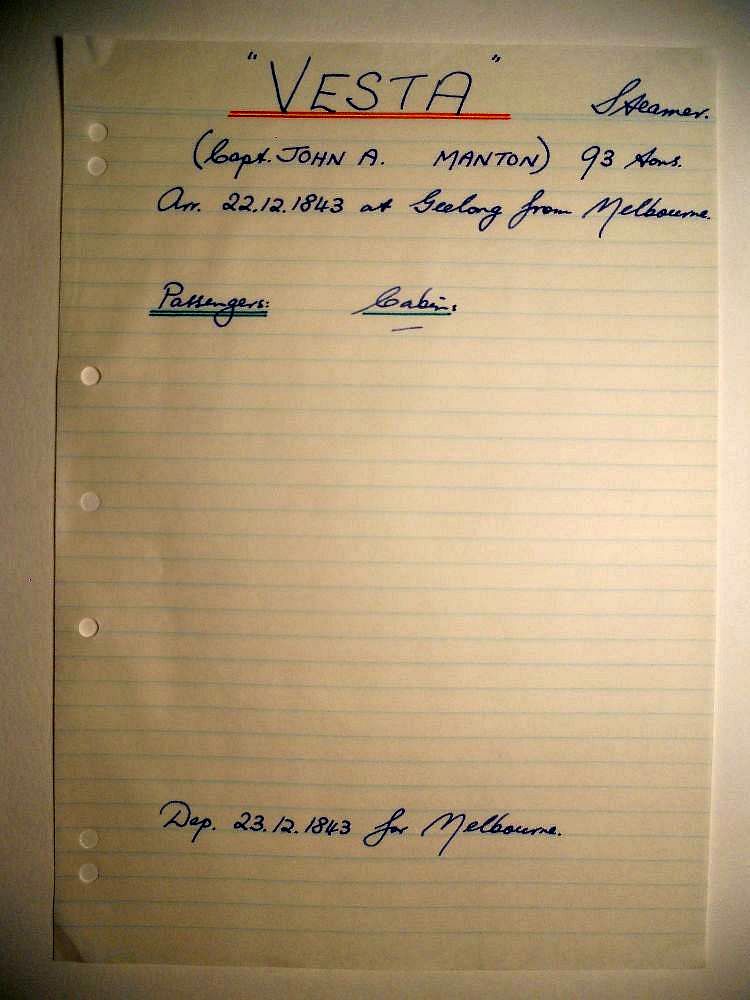 "VESTA" Steamer.
(Capt. JOHN A. MANTON) 93 tons.
Arr. 22.12.1843 at Geelong from Melbourne.
Passengers: Cabin:
—
Dep. 23.12.1843 for Melbourne.